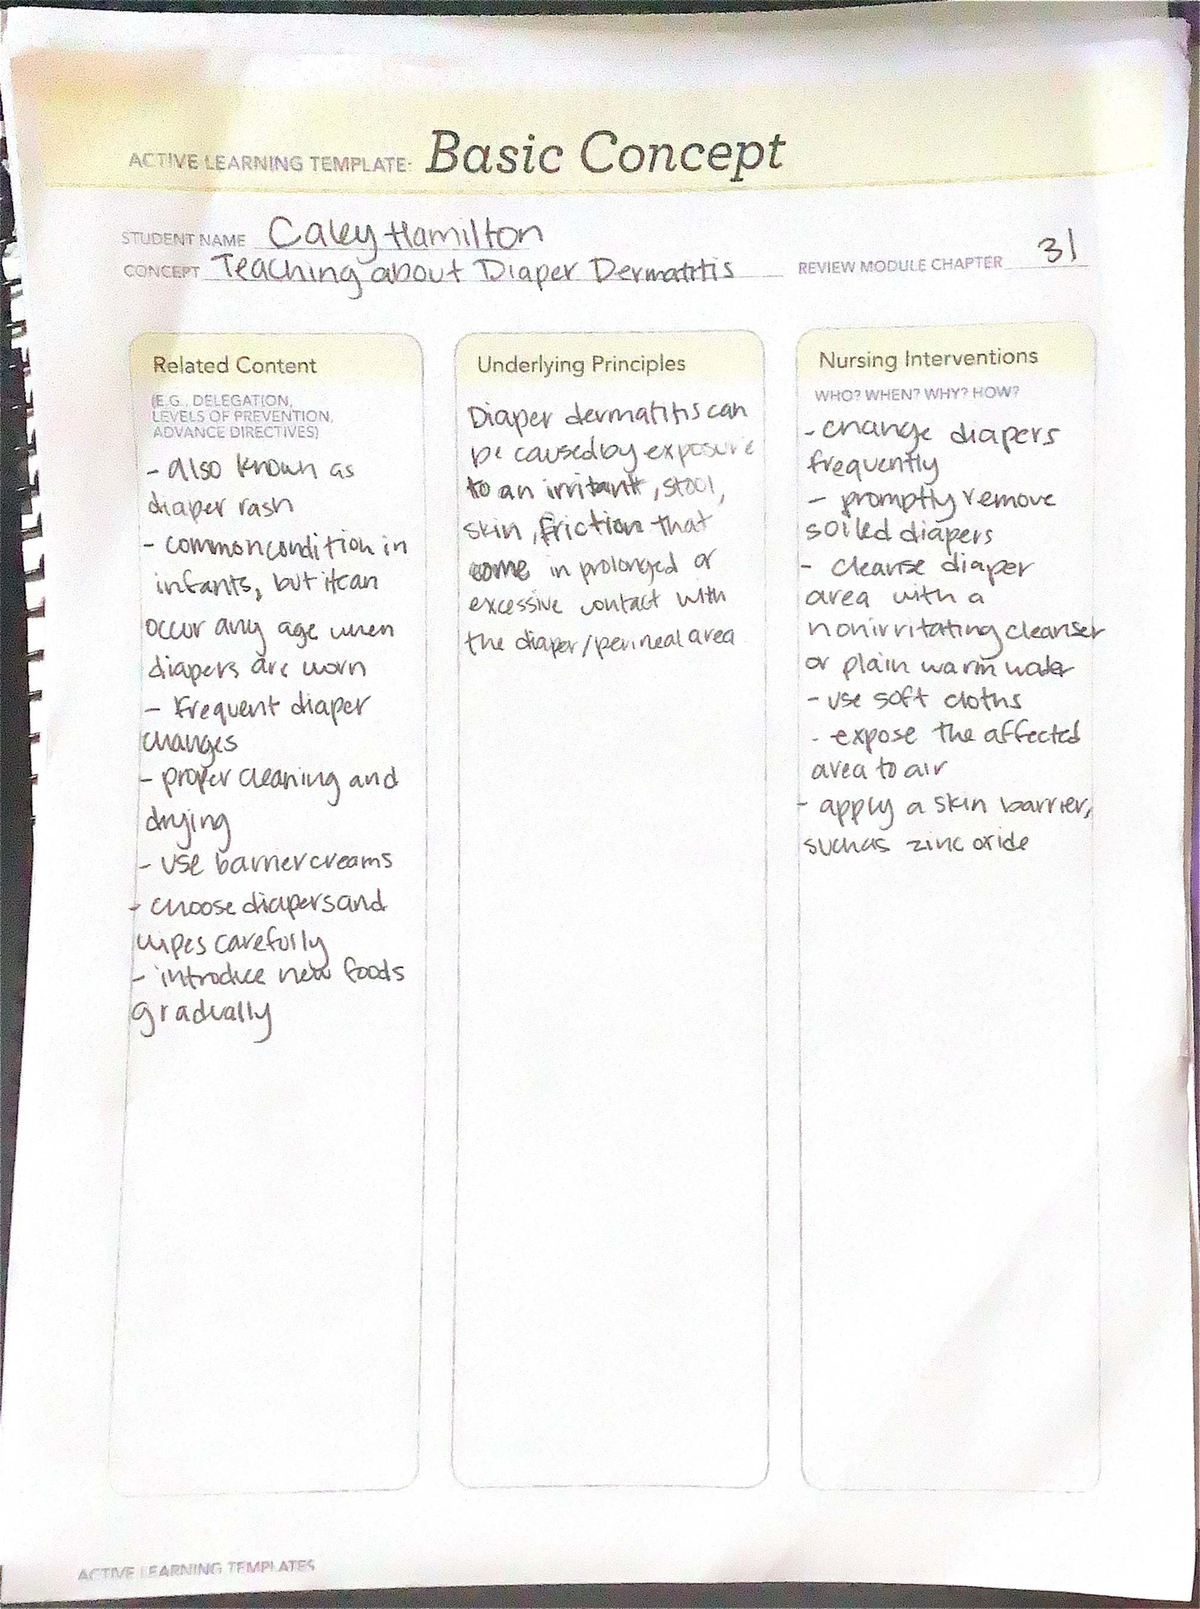 ACTIVE LEARNING TEMPLATE: Basic Concept
STUDENT NAME Caley Hamilton
CONCEPT Teaching about Diaper Dermatitis REVIEW MODULE CHAPTER 31
Related Content
(E.G., DELEGATION,
LEVELS OF PREVENTION,
ADVANCE DIRECTIVES)
- also known as
diaper rash
- common condition in
infants, but it can
occur any age when
diapers are worn
- Frequent diaper
changes
- proper cleaning and
drying
- use barrier creams
- choose diapers and
wipes carefully
- introduce new foods
gradually
Underlying Principles
Diaper dermatitis can
be caused by exposure
to an irritant, stool,
skin, friction that
come in prolonged or
excessive contact with
the diaper/perineal area
Nursing Interventions
WHO? WHEN? WHY? HOW?
- change diapers
frequently
- promptly remove
soiled diapers
- cleanse diaper
area with a
nonirritating cleanser
or plain warm water
- use soft cloths
- expose the affected
area to air
- apply a skin barrier,
such as zinc oxide
ACTIVE LEARNING TEMPLATES